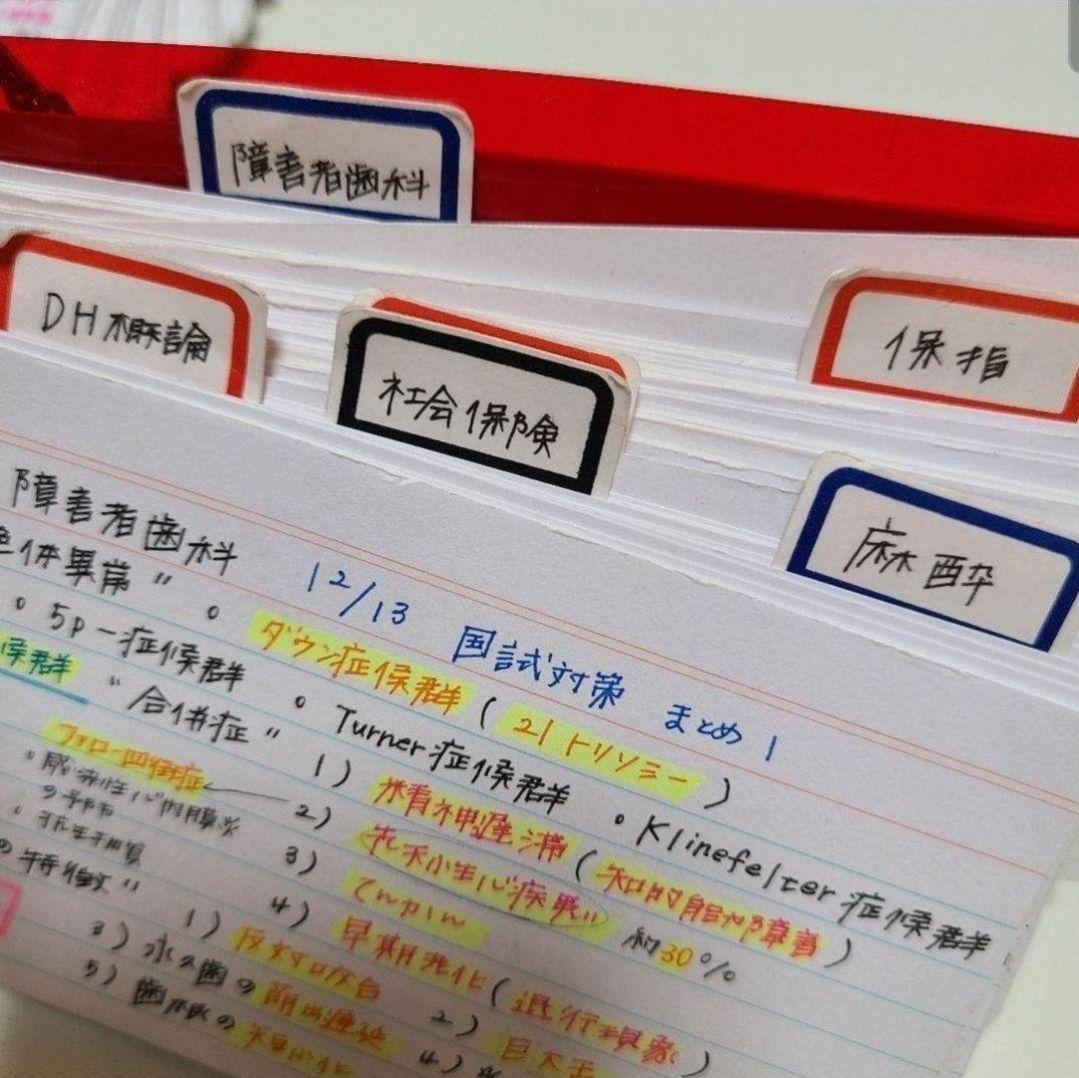 障害者歯科
DH概論
社会保険
保指
麻酔
障害者歯科 12/13 国試対策 まとめ1
色体異常" ○ ダウン症候群 (21トリソミー)
○ 5p-症候群 ○ Turner症候群 ○ Klinefelter症候群
候群 " 合併症" 1) 精神遅滞 (知的能力障害)
ファロー四徴症 2) 先天性心疾患 約30%
○ 感染性心内膜炎の予防 3) てんかん
4) 早期老化 (退行現象)
の特徴" 1) 反対咬合 2) 巨大舌
3) 永久歯の萌出遅延 4)
5) 歯根の